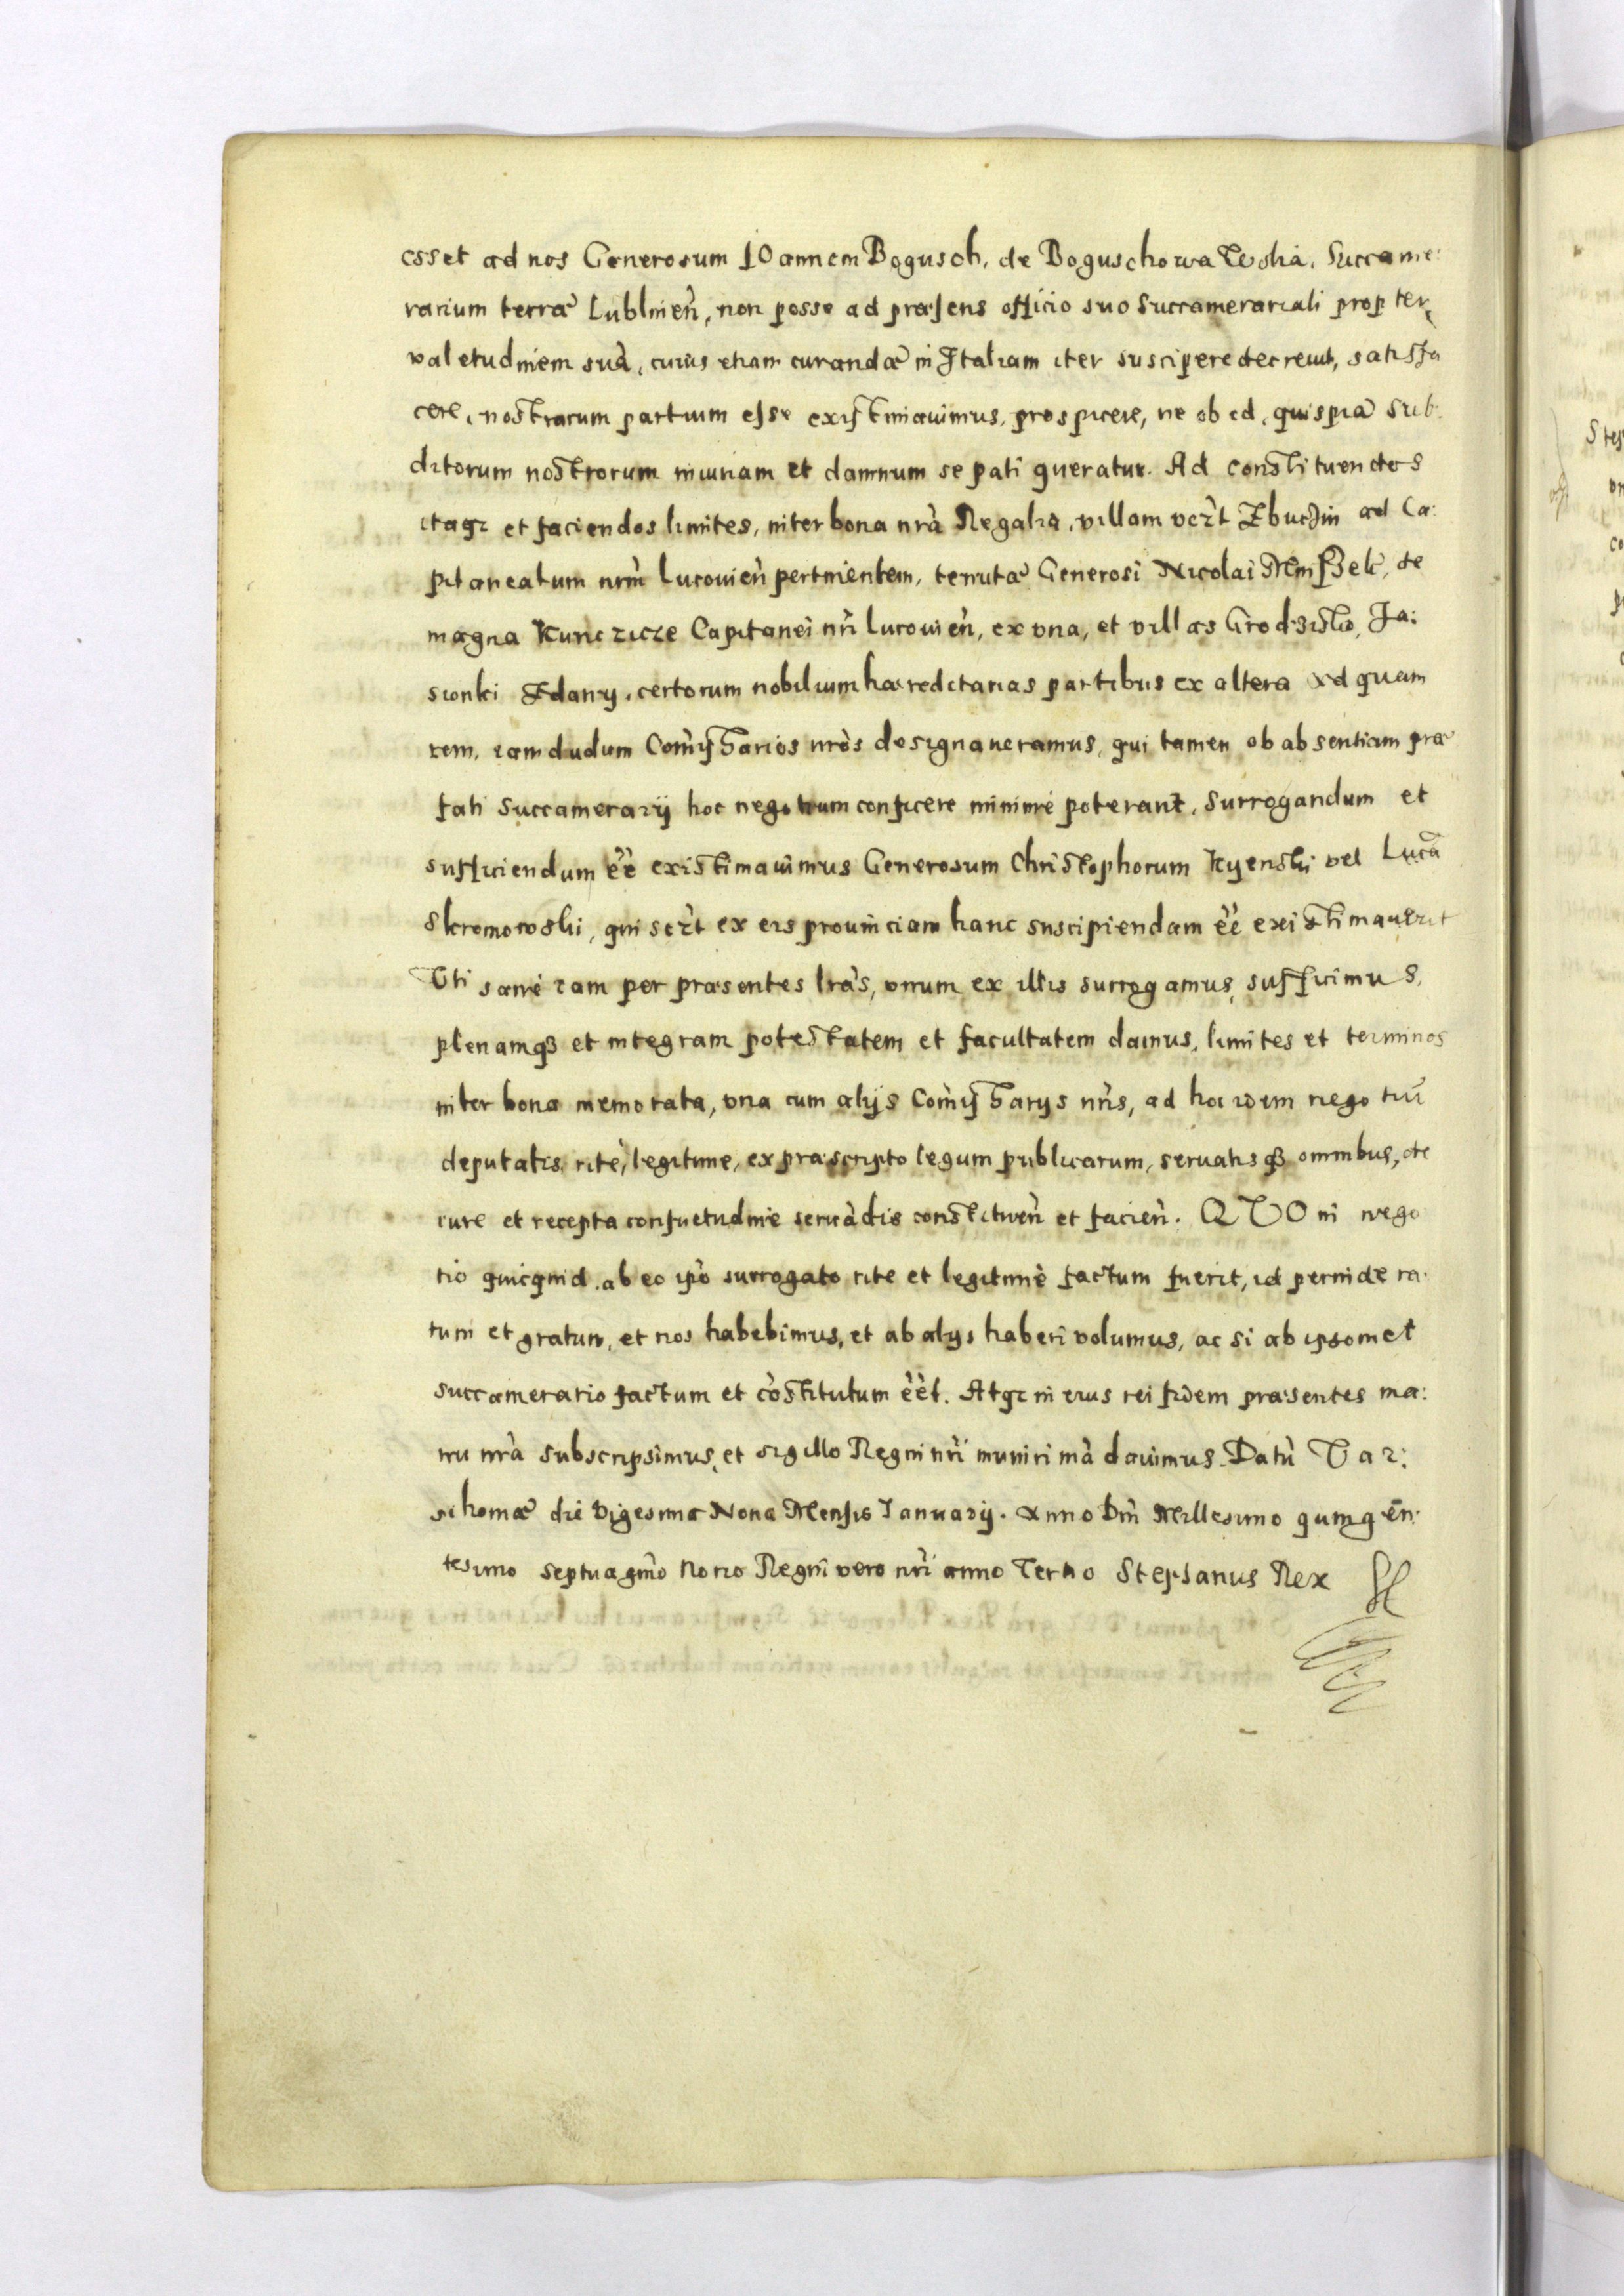 esset ad nos Generosum IOannem Bogusch, de Boguschowa Wolia, Succame:
rarium terræ Lublinen̄, non posse ad præsens officio suo Succamerariali propter
valetudinem suā, cuius etiam curandæ in Italiam iter suscipere decreuit, satisfa
cere, nostrarum partium esse existimauimus, prospicere, ne ob id, quispiā sub:
ditorum nostrorum iniuriam et damnum se pati queratur. Ad constituendos
itaqꝫ et faciendos limites, inter bona nr̄a Regalia, villam ver̄t Zbuczin ad Ca:
pitaneatum nrm̄ Lucouien̄ pertinentem, tenutæ Generosi Nicolai Minszek, de
magna Kunczicze Capitanei nr̄i Lucouien̄, ex vna, et villas Grodzisko, Ja:
sionki Zdany, certorum nobilium hæreditarias partibus ex altera Ad quam
rem, iamdudum Com̄issarios nr̄os designaueramus, qui tamen ob absentiam præ
fati Succamerarij hoc negotium conficere minimè poterant, Surrogandum et
sufficiendum ēē existimauimus Generosum Christophorum Kyenski vel Lucā
Skromowski, qui ser̄t ex eis prouinciam hanc suscipiendam ēē exeistimauerit
Vti sanè iam per præsentes lr̄as, vnum ex illis surrogamus, sufficimus,
plenamqꝫ et integram potestatem et facultatem damus, limites et terminos
inter bona memorata, vna cum alijs Com̄issarys nr̄is, ad hoc idem negotiū
deputatis, ritè, legitime, ex præscripto legum publicarum, seruatisqꝫ omnibus, de
iure et recepta consuetudine seruādis constituen̄ et facien̄. QVO in nego
tio quicquid ab eo ip̄o surrogato rite et legitimè factum fuerit, id perinde ra:
tum et gratum, et nos habebimus, et ab alys haberi volumus, ac si ab ipsomet
Succamerario factum et cōstitutum ēēt. Atqꝫ in eius rei fidem præsentes ma:
nu nr̄a subscripsimus, et sigillo Regni nr̄i muniri mādauimus. Datū Var:
schouiæ die Vigesima Nona Mensis Ianuarij. Anno Dn̄i Millesimo quingēn:
tesimo septuagm̄o Nono Regni vero nr̄i anno Tertio Stephanus Rex